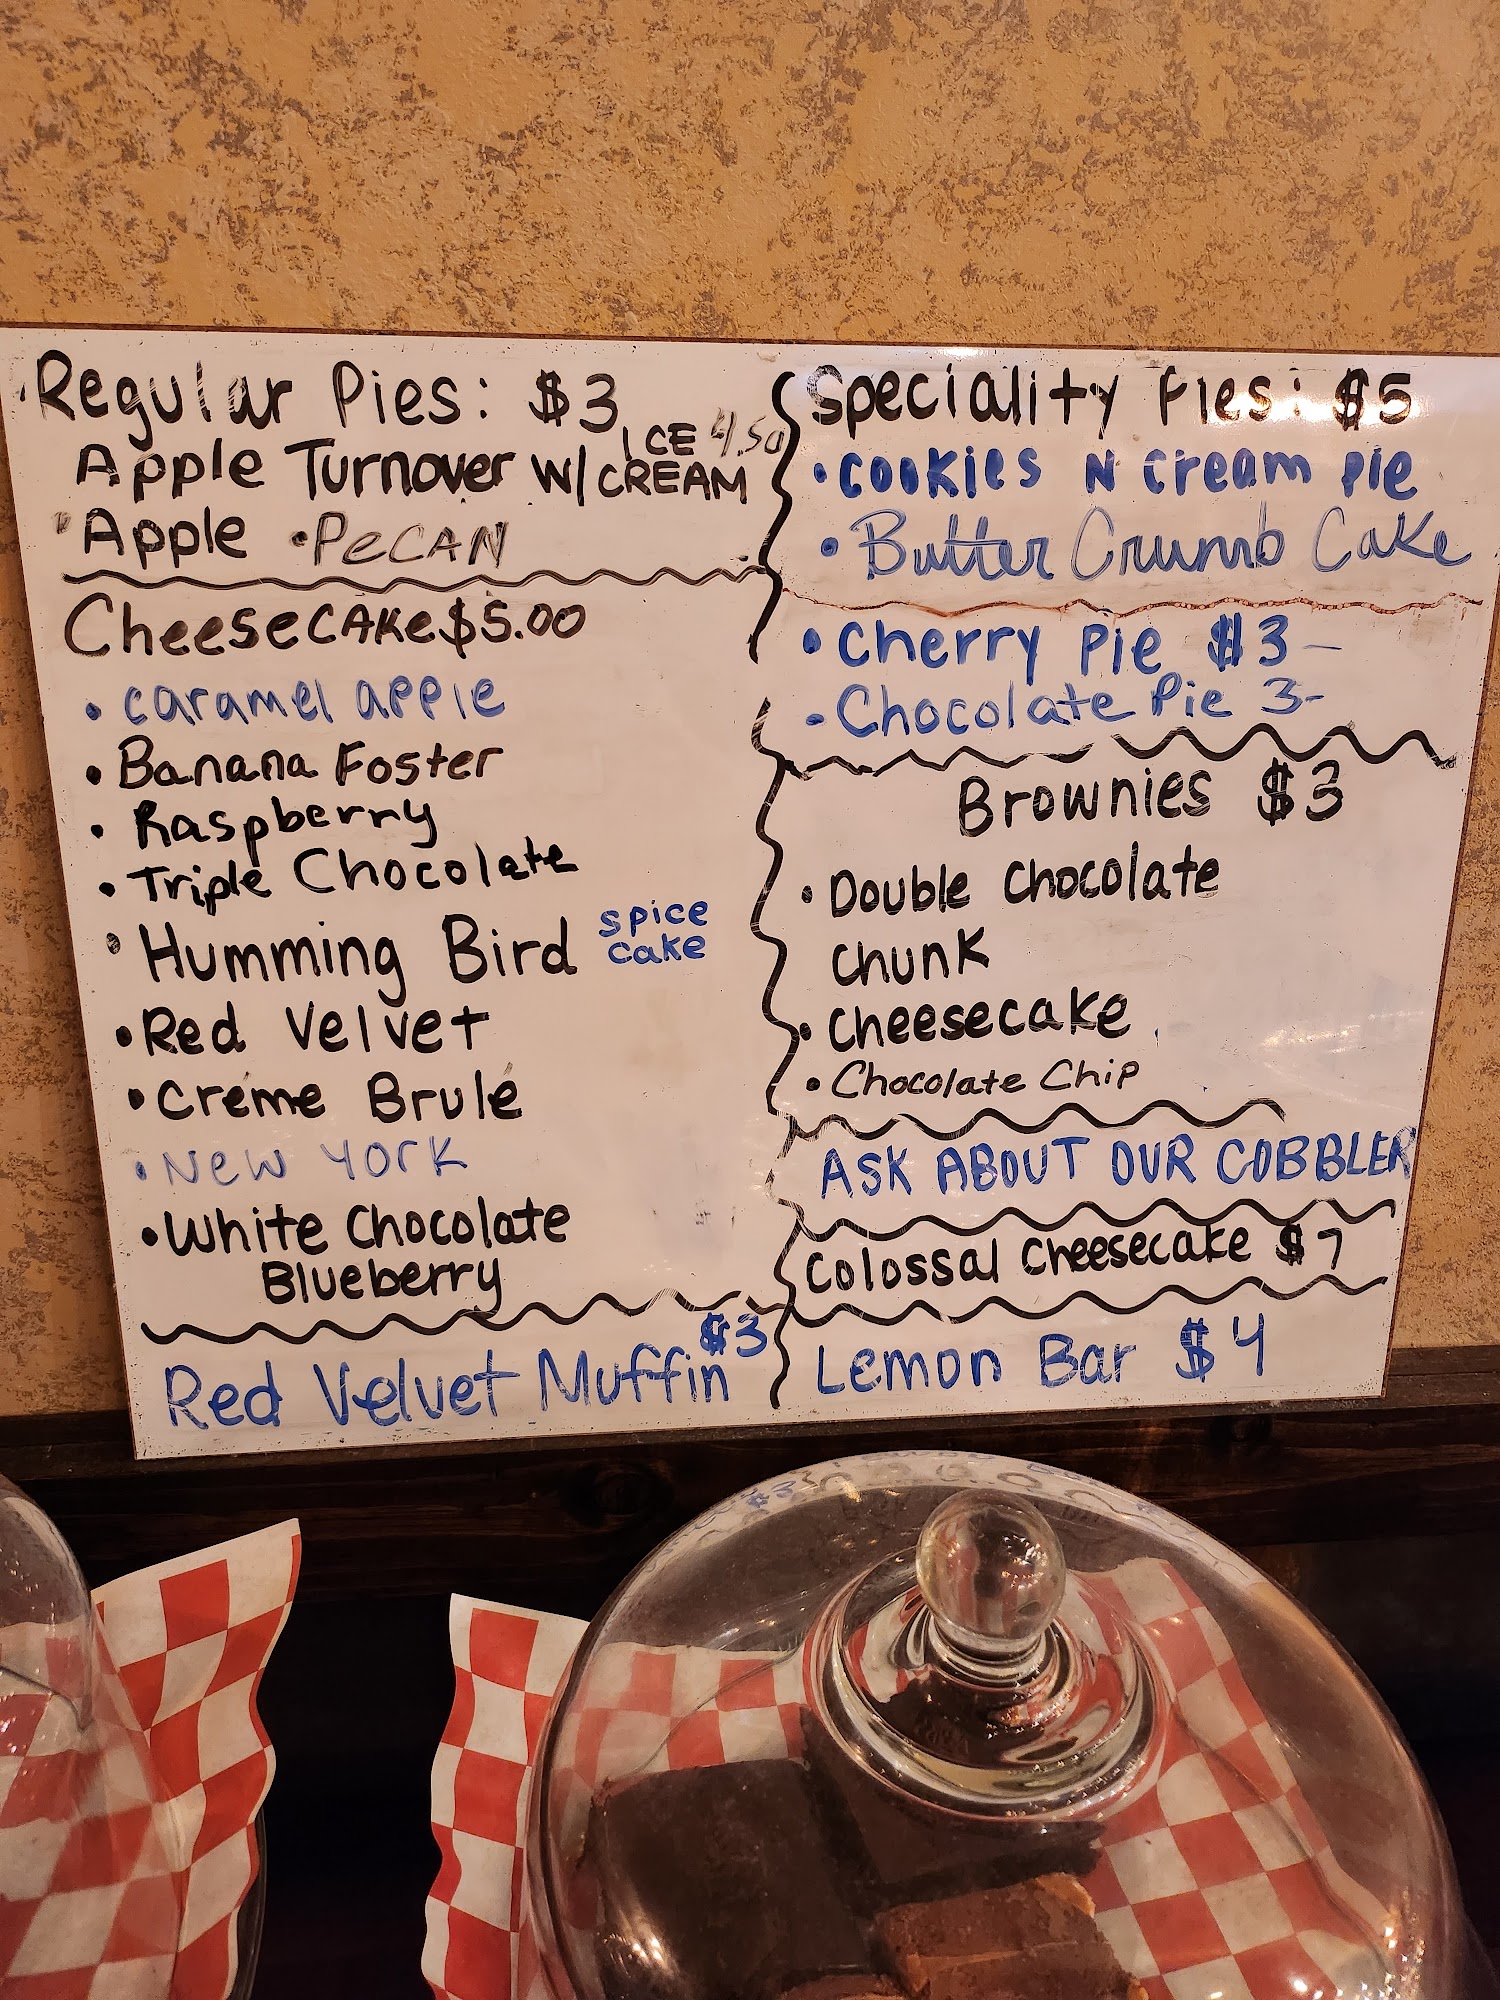 Regular Pies: $3
Apple Turnover W/ ICE CREAM 4.50
• Apple • PeCAN
CheeseCAKe $5.00
• caramel apple
• Banana Foster
• Raspberry
• Triple Chocolate
• Humming Bird spice cake
• Red Velvet
• Créme Brulé
• New York
• White Chocolate
Blueberry
Red Velvet Muffin $3
Speciality Pies: $5
• Cookies N Cream Pie
• Butter Crumb Cake
• Cherry Pie $3-
• Chocolate Pie 3-
Brownies $3
• Double Chocolate
Chunk
• Cheesecake
• Chocolate Chip
ASK ABOUT OUR COBBLER
Colossal Cheesecake $7
Lemon Bar $4